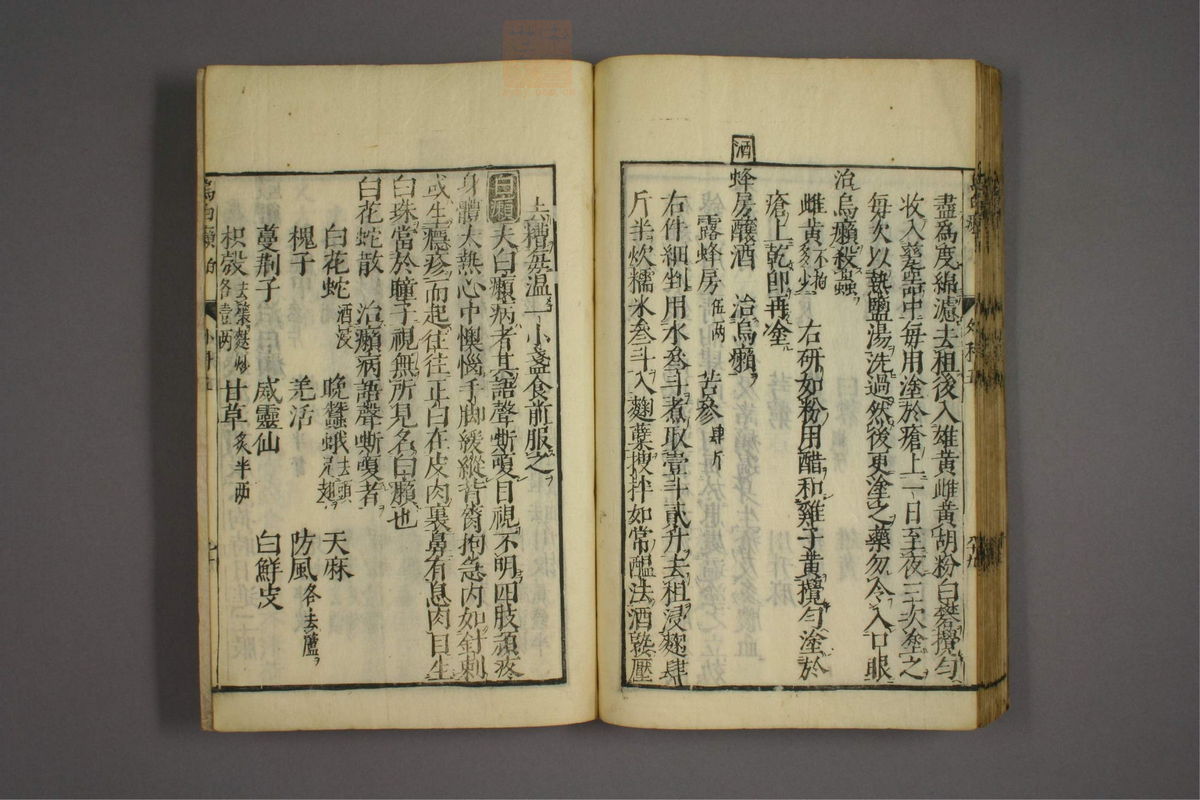 盡為度綿濾去柤後入雄黃雌黃胡粉白礬攪勻
收入甆器中每用塗於瘡上一日至夜三次塗之
每次以熱鹽湯洗過然後更塗之藥勿令入口眼
治烏癩殺蟲
雌黃不拘多少 右研如粉用醋和雞子黃攪勻塗於
瘡上乾即再塗
酒
蜂房釀酒 治烏癩
露蜂房伍兩 苦參肆斤
右件細剉用水叁斗煮取壹斗貳升去柤浸麴肆
斤半炊糯米叁斗入麴蘖搜拌如常醞法酒熟壓
去糟每溫一小盞食前服之
白癩
夫白癩病者其語聲嘶嗄目視不明四肢頑疼
身體大熱心中懊惱手脚緩縱背膂拘急內如針刺
或生癮疹而起往往正白在皮肉裏鼻有息肉目生
白珠當於瞳子視無所見名曰癩也
白花蛇散 治癩病語聲嘶嗄者
白花蛇酒浸 晚蠶蛾去頭足翅 天麻
槐子 羌活 防風各去蘆
蔓荆子 威靈仙 白鮮皮
枳殼去穰麩炒各壹两 甘草炙半两
烏白癩